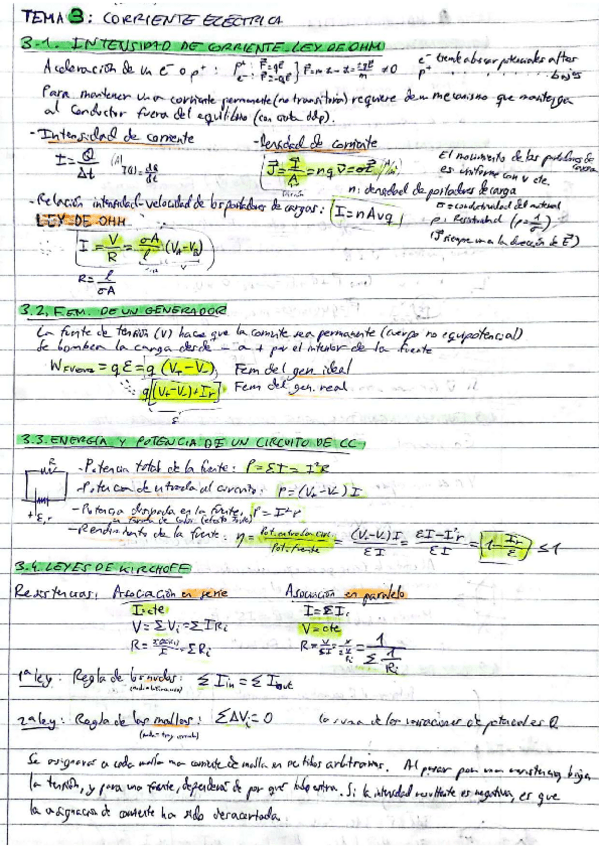 TEMA 3: CORRIENTE ELÉCTRICA
3.1. INTENSIDAD DE CORRIENTE. LEY DE OHM
Aceleración de un e⁻ o p⁺:
e⁻ tiende a buscar potenciales altos
p⁺ " " " " bajos
Para mantener una corriente permanente (no transitoria) requiere de un mecanismo que mantenga
al conductor fuera del equilibrio (con cierta ddp).
- Intensidad de corriente
I = Q/Δt (A) I(t) = dq/dt
- Densidad de corriente
J = I/A = nqv = σE
n: densidad de portadores de carga
El movimiento de los portadores de carga
es uniforme con v cte.
σ = conductividad del material
ρ: Resistividad (ρ = 1/σ)
(J siempre va a la dirección de E)
- Relación intensidad-velocidad de los portadores de cargas: I = nAvq
LEY DE OHM
I = V/R = σA/l (V_A - V_B)
R = l/σA
3.2. F.EM. DE UN GENERADOR
La fuente de tensión (V) hace que la corriente sea permanente (cuerpo no equipotencial)
Se bombea la carga desde - a + por el interior de la fuente
W_FUERZA = qℰ = q (V₊ - V₋) Fem del gen. ideal
q[(V₊ - V₋) + Ir] Fem del gen. real
3.3. ENERGÍA Y POTENCIA DE UN CIRCUITO DE CC
R
+ ℰ, r
- Potencia total de la fuente: P = ℰI = I²R
- Potencia de entrada al circuito: P = (V₊ - V₋) I
- Potencia disipada en la fuente: P = I²r
en forma de calor (efecto Joule)
- Rendimiento de la fuente: η = Pot. entrada circ. / Pot. fuente = (V₊ - V₋)I / ℰI = (ℰI - I²r) / ℰI = 1 - Ir/ℰ ≤ 1
3.4. LEYES DE KIRCHOFF
Resistencias: Asociación en serie
I = cte
V = ΣVᵢ = ΣIRᵢ
R = = ΣRᵢ
Asociación en paralelo
I = ΣIᵢ
V = cte
R = V/ΣI = = 1 / Σ 1/Rᵢ
1ª ley: Regla de los nudos: ΣI in = ΣI out
2ª ley: Regla de las mallas: ΣΔVᵢ = 0 La suma de las variaciones de potencial es 0.
Se asignará a cada malla una corriente de malla en sentidos arbitrarios. Al pasar por una resistencia, baja
la tensión, y para una fuente, dependerá de por qué polo entra. Si la intensidad resultante es negativa, es que
la asignación de corriente ha sido desacertada